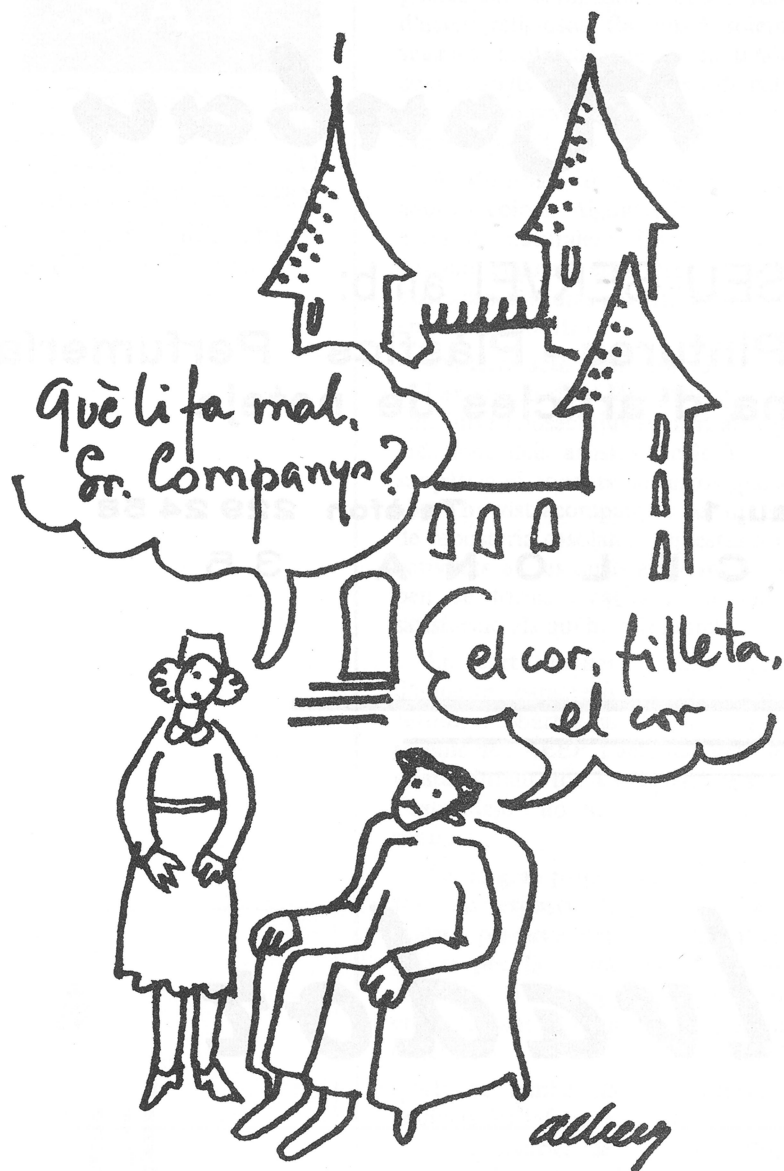 Què li fa mal,
Sr. Companys?
el cor, filleta,
el cor